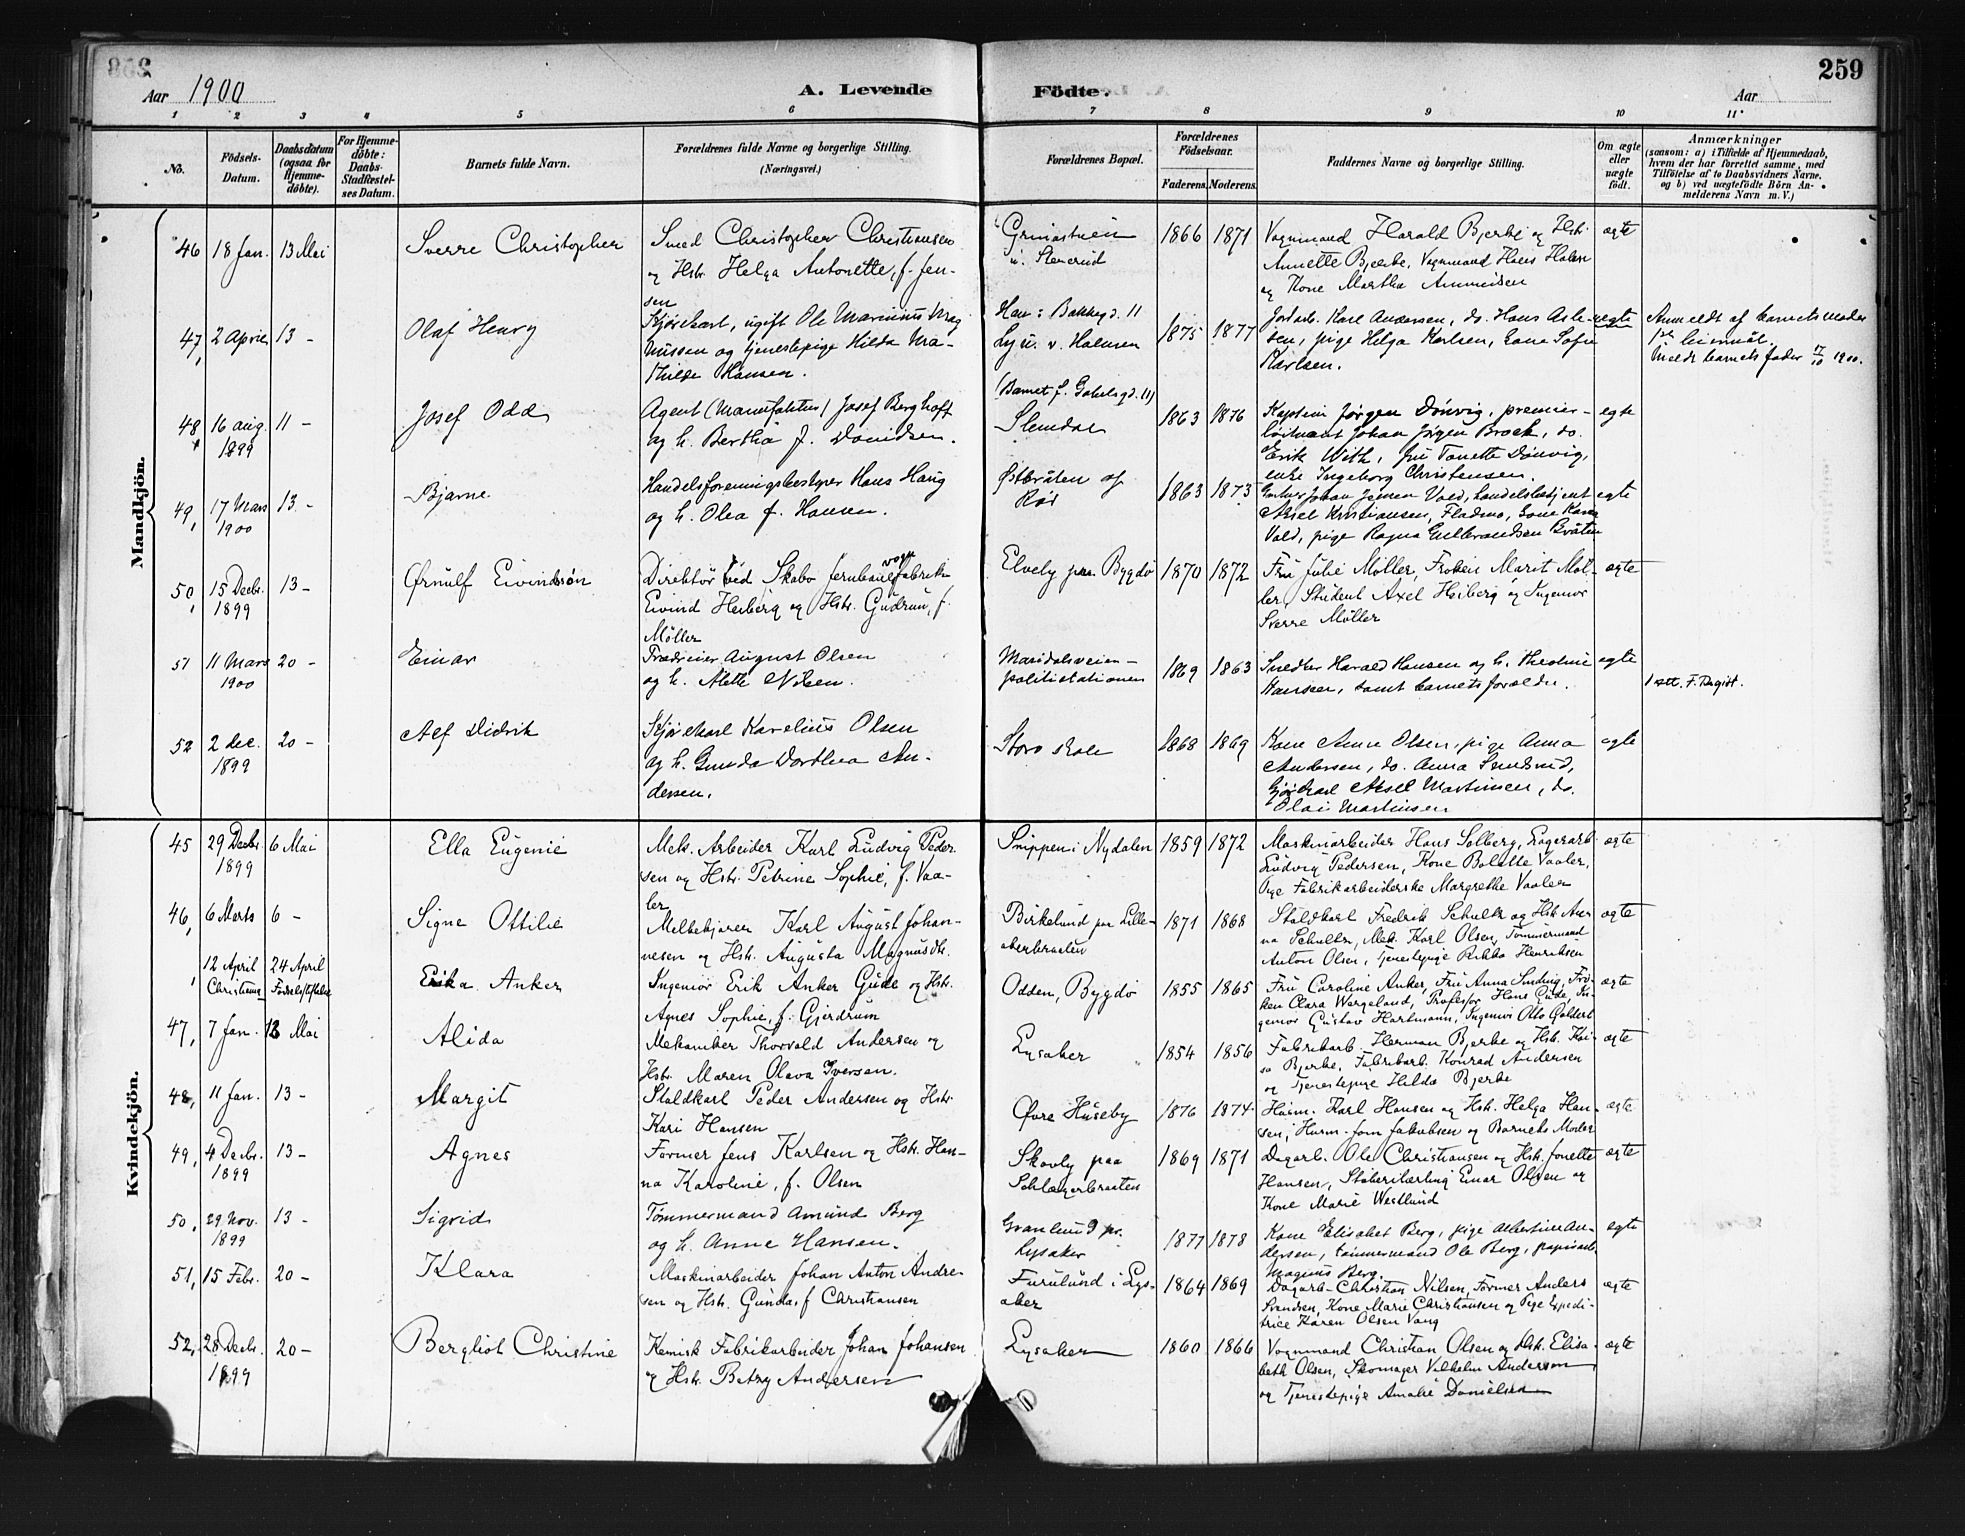 259
Aar 1900
A. Levende Födte.
Aar
1 2 3 4 5 6 7 8 9 10 11
No.
Födsels-Datum.
Daabsdatum (ogsaa for Hjemme-döbte).
For Hjemme-döbte: Daabs-Stadfæstelses Datum.
Barnets fulde Navn.
Forældrenes fulde Navne og borgerlige Stilling. (Næringsvei.)
Forældrenes Bopæl.
Forældrenes Födselsaar.
Faderens. Moderens.
Faddernes Navne og borgerlige Stilling.
Om ægte eller uægte födt.
Anmærkninger
(saasom: a) i Tilfælde af Hjemmedaab, hvem der har forrettet samme, med Tilföielse af to Daabsvidners Navne, og b) ved uægtefödte Börn Anmelderens Navn m. V.)
Mandkjön.
46 18 Jan. 13 Mai Sverre Christopher Smed Christopher Christiansen 1866 1871 Vognmand Harald Bjerke og Hstr. ægte
og Hstr. Helga Antonette, f. Jen- Annette Bjerke, Vognmand Hans Holm
sen og Kone Martha
47, 2 April 13 - Olaf Henry Kjørekarl, ugift Ole Marinius Mag- 1875 1877 Jordarb. Karl Andersen, do. Hans Asle- uægte Anmeldt af barnets moder
nussen og tjenestepige Hilda Ma- sen, pige Helga Karlsen, Kone Sofie
thilde Hansen. Karlsen. Meldt barnets fader 17/10 1900.
48 16 aug. 1899 11 - Josef Odd Agent (Manufaktur) Josef Berghoff Slemdal 1863 1876 Kaptein Jörgen Dönvig, premier- egte
og h. Bertha f. Davidsen. löitnant Johan Jörgen Brock, do.
Erik With, fru Tonette Dönvig,
enke Ingeborg Christensen.
49, 17 Mars 1900 13 - Bjarne Handelsforeningsbestyrer Hans Haug Østbråten af Røi 1863 1873 Johan Jensen Vold, handelsbetjent egte
og h. Olea f. Hansen. Aksel Kristiansen, Fladmo, Kone Karen
Vold, pige Ragna Gulbrandsen Bråten
50, 15 Decbr. 1899 13 - Ørnulf Eivindsön Direktör ved Skabo Jernbanevognfabrik Elvely pr. Bygdö 1870 1872 Fru Julie Möller, Fröken Marit Möl- ægte
Eivind Heiberg og Hstr. Gudrun, f. ler, Student Axel Heiberg og Ingeniör
Möller Sverre Möller
51 11 Mars 1900 20 - Einar August Olsen Maridalsveien - politistationen 1869 1863 Snedker Harald Hansen og h. Theoline egte
og h. Alette Nilsen. Hansen, samt barnets forældre. 1 att. F. Dagist.
52 2 dec. 1899 20 - Alf Didrik Kjørekarl Karelius Olsen Storo skole 1868 1869 Kone Anne Olsen, pige Anna egte
og h. Gunda Dorthea An- Andersen, do. Anna Sundsrud,
dersen. Kjørekarl Aksel Martinsen, do.
Olai Martinsen
Kvindekjön.
45 29 Decbr. 1899 6 Mai Ella Eugenie Mek. Arbeider Karl Ludvig Peder- Snippen i Nydalen 1859 1872 Maskinarbeider Hans Solberg, Lagerarb. ægte
sen og Hstr. Petrine Sophie, f. Vaa- Ludvig Pedersen, Kone Bolette Vaaler,
ler Pige Fabrikarbeiderske Margrethe Vaaler
46, 6 Marts 6 - Signe Ottilie Melkekjører Karl August Johan- Birkelund paa Lille- 1871 1868 Staldkarl Fredrik Schultz og Hstr. An- ægte
nesen og Hstr. Augusta Magnusdtr. na Schultz, Mek. Karl Olsen, Tömmermand
Anton Olsen, Tjenestepige Rikka Henriksen
12 April Christiania 24 April Födselsstiftelse Erika Anker Ingeniör Erik Anker Gude og Hstr. Odden, Bygdö 1855 1865 Fru Caroline Anker, Fru Anna Sinding, Frö- ægte
Agnes Sophie, f. Gjerdrum ken Clara Wergeland, Professor Hans Gude, In-
geniör Gustav Hartmann, Ingeniör Otto Galdert
47, 7 Jan. 13 Mai Alida Mekaniker Thorvald Andersen og Lysaker 1854 1856 Fabrikarb. Herman Bjerke og Hstr. Kai- ægte
Hstr. Maren Olava Iversen. sa Bjerke, Fabrikarb. Konrad Andersen
og Tjenestepige Hilda Bjerke
48, 11 Jan. 13 - Margit Staldkarl Peder Andersen og Hstr. Øvre Huseby 1876 1874 Husm. Karl Hansen og Hstr. Helga Han- ægte
Kari Hansen sen, Husm. Jakobsen og Barnets Moder
49, 4 Decbr. 1899 13 - Agnes Former Jens Karlsen og Hstr. Han- Skovly paa 1869 1871 Dagarb. Ole Christiansen og Hstr. Jonette ægte
na Karoline, f. Olsen Hansen, Stöberilærling Einar Olsen og
Kone Marie Westlund
50, 29 Nov. 1899 13 - Sigrid Tömmermand Amund Berg Granlund pr. Lysaker 1877 1878 Kone Elisabet Berg, pige Albertine An- egte
og h. Anne Hansen. dersen, tömmermand Ole Berg, papirarb.
Magnus Berg.
51, 15 Febr. 20 - Klara Maskinarbeider Johan Anton Andre- Furulund i Lys- aker 1864 1869 Dagarb. Christian Nilsen, Former Anders ægte
sen og Hstr. Gunda, f. Christiansen Svendsen, Kone Marie Christiansen og Pige Expedi-
trice Karen Olsen Vang
52, 28 Decbr. 1899 20 - Bergliot Christine Kemisk Fabrikarbeider Johan Johansen Lysaker 1860 1866 Vognmand Christian Olsen og Hstr. Elisa- ægte
og Hstr. Betzy Andersen beth Olsen, Skomager Vilhelm Anderson
og Tjenestepige Amalie Danielsen